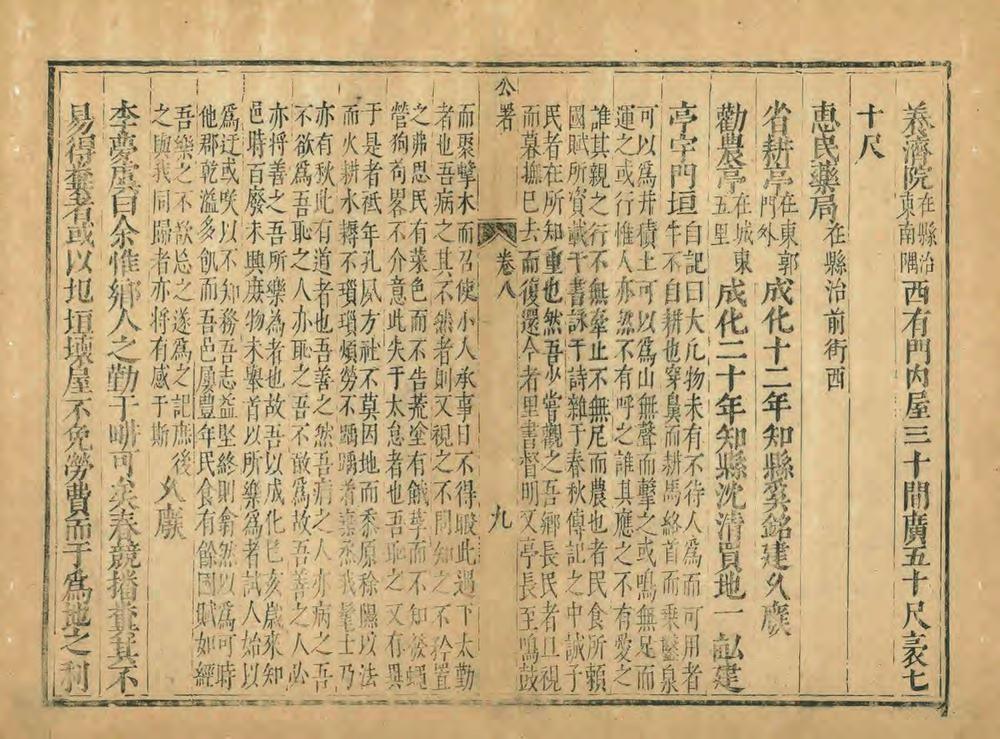 養濟院在縣治東南隅西有門內屋三十間廣五十尺袤七
十尺
惠民藥局在縣治前街西
省耕亭在東郭門外成化十二年知縣奚銘建久廢
勸農亭在城東五里成化二十年知縣沈清買地一畝建
亭字門垣自記曰大凡物未有不待人為而可用者牛不自耕也穿鼻而耕馬絡首而乘鑿泉
可以為井積土可以為山無聲而擊之或鳴無足而運之或行惟人亦然不有呼之誰其應之不有愛之
誰其親之行不無牽止不無尼而農也者民食所賴國賦所資載于書詠于詩雜于春秋傳記之中誠子
民者在所知重也然吾少嘗觀之吾鄉長民者旦視而暮撫已去而復還今者里書督明又亭長至鳴鼓
公署
卷八
九
而聚擊木而召使小人承事日不得暇此過下太勤者也吾病之其不然者則又視之不問知之不矜置
之弗思民有菜色而不告荒塗有餓莩而不知後蠅營狗苟畧不介意此失于太怠者也吾恥之又有異
于是者祗年孔夙方社不莫因地而黍原稌隰以法而火耕水耨不瑣瑣煩勞不踽踽者烝烝我髦士乃
亦有秋此有道者也吾善之然吾病之人亦病之吾不欲為吾恥之人亦恥之吾不敢為故吾善之人必
亦將善之吾所樂為者也故吾以成化乙亥歲來知邑時百廢未興庶物未舉首以所樂為者試人始以
為迂或咲以不知務吾志益堅終則翕然以為可時他郡乾溢多飢而吾邑屢豐年民食有餘國賦如經
吾樂之不欲忘之遂為之記庶後之與我同歸者亦將有感于斯久廢
李夢度曰余惟鄉人之勤于畊可矣春競播糞其不
易得糞者或以圯垣壞屋不免勞費而于為地之利